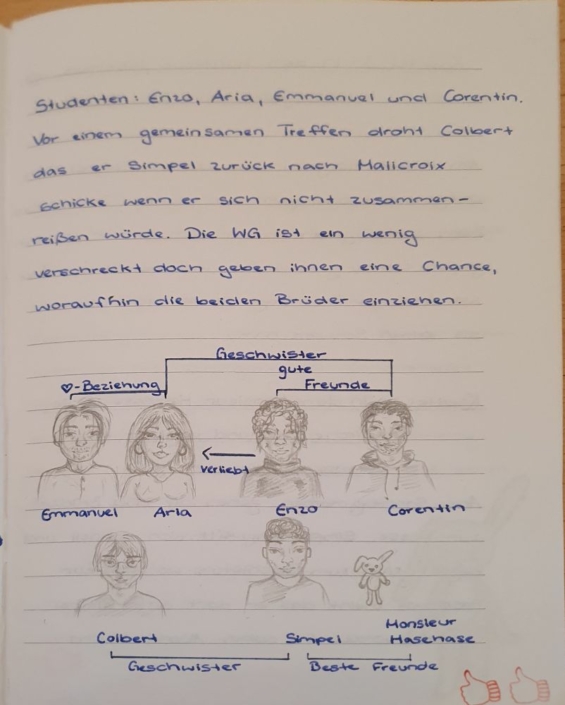 Studenten: Enzo, Aria, Emmanuel und Corentin.
Vor einem gemeinsamen Treffen droht Colbert
das er Simpel zurück nach Malicroix
schicke wenn er sich nicht zusammen-
reißen würde. Die WG ist ein wenig
verschreckt doch geben ihnen eine Chance,
woraufhin die beiden Brüder einziehen.
Geschwister
gute
♡-Beziehung Freunde
verliebt
Emmanuel Aria Enzo Corentin
Monsieur
Colbert Simpel Hasehase
Geschwister Beste Freunde